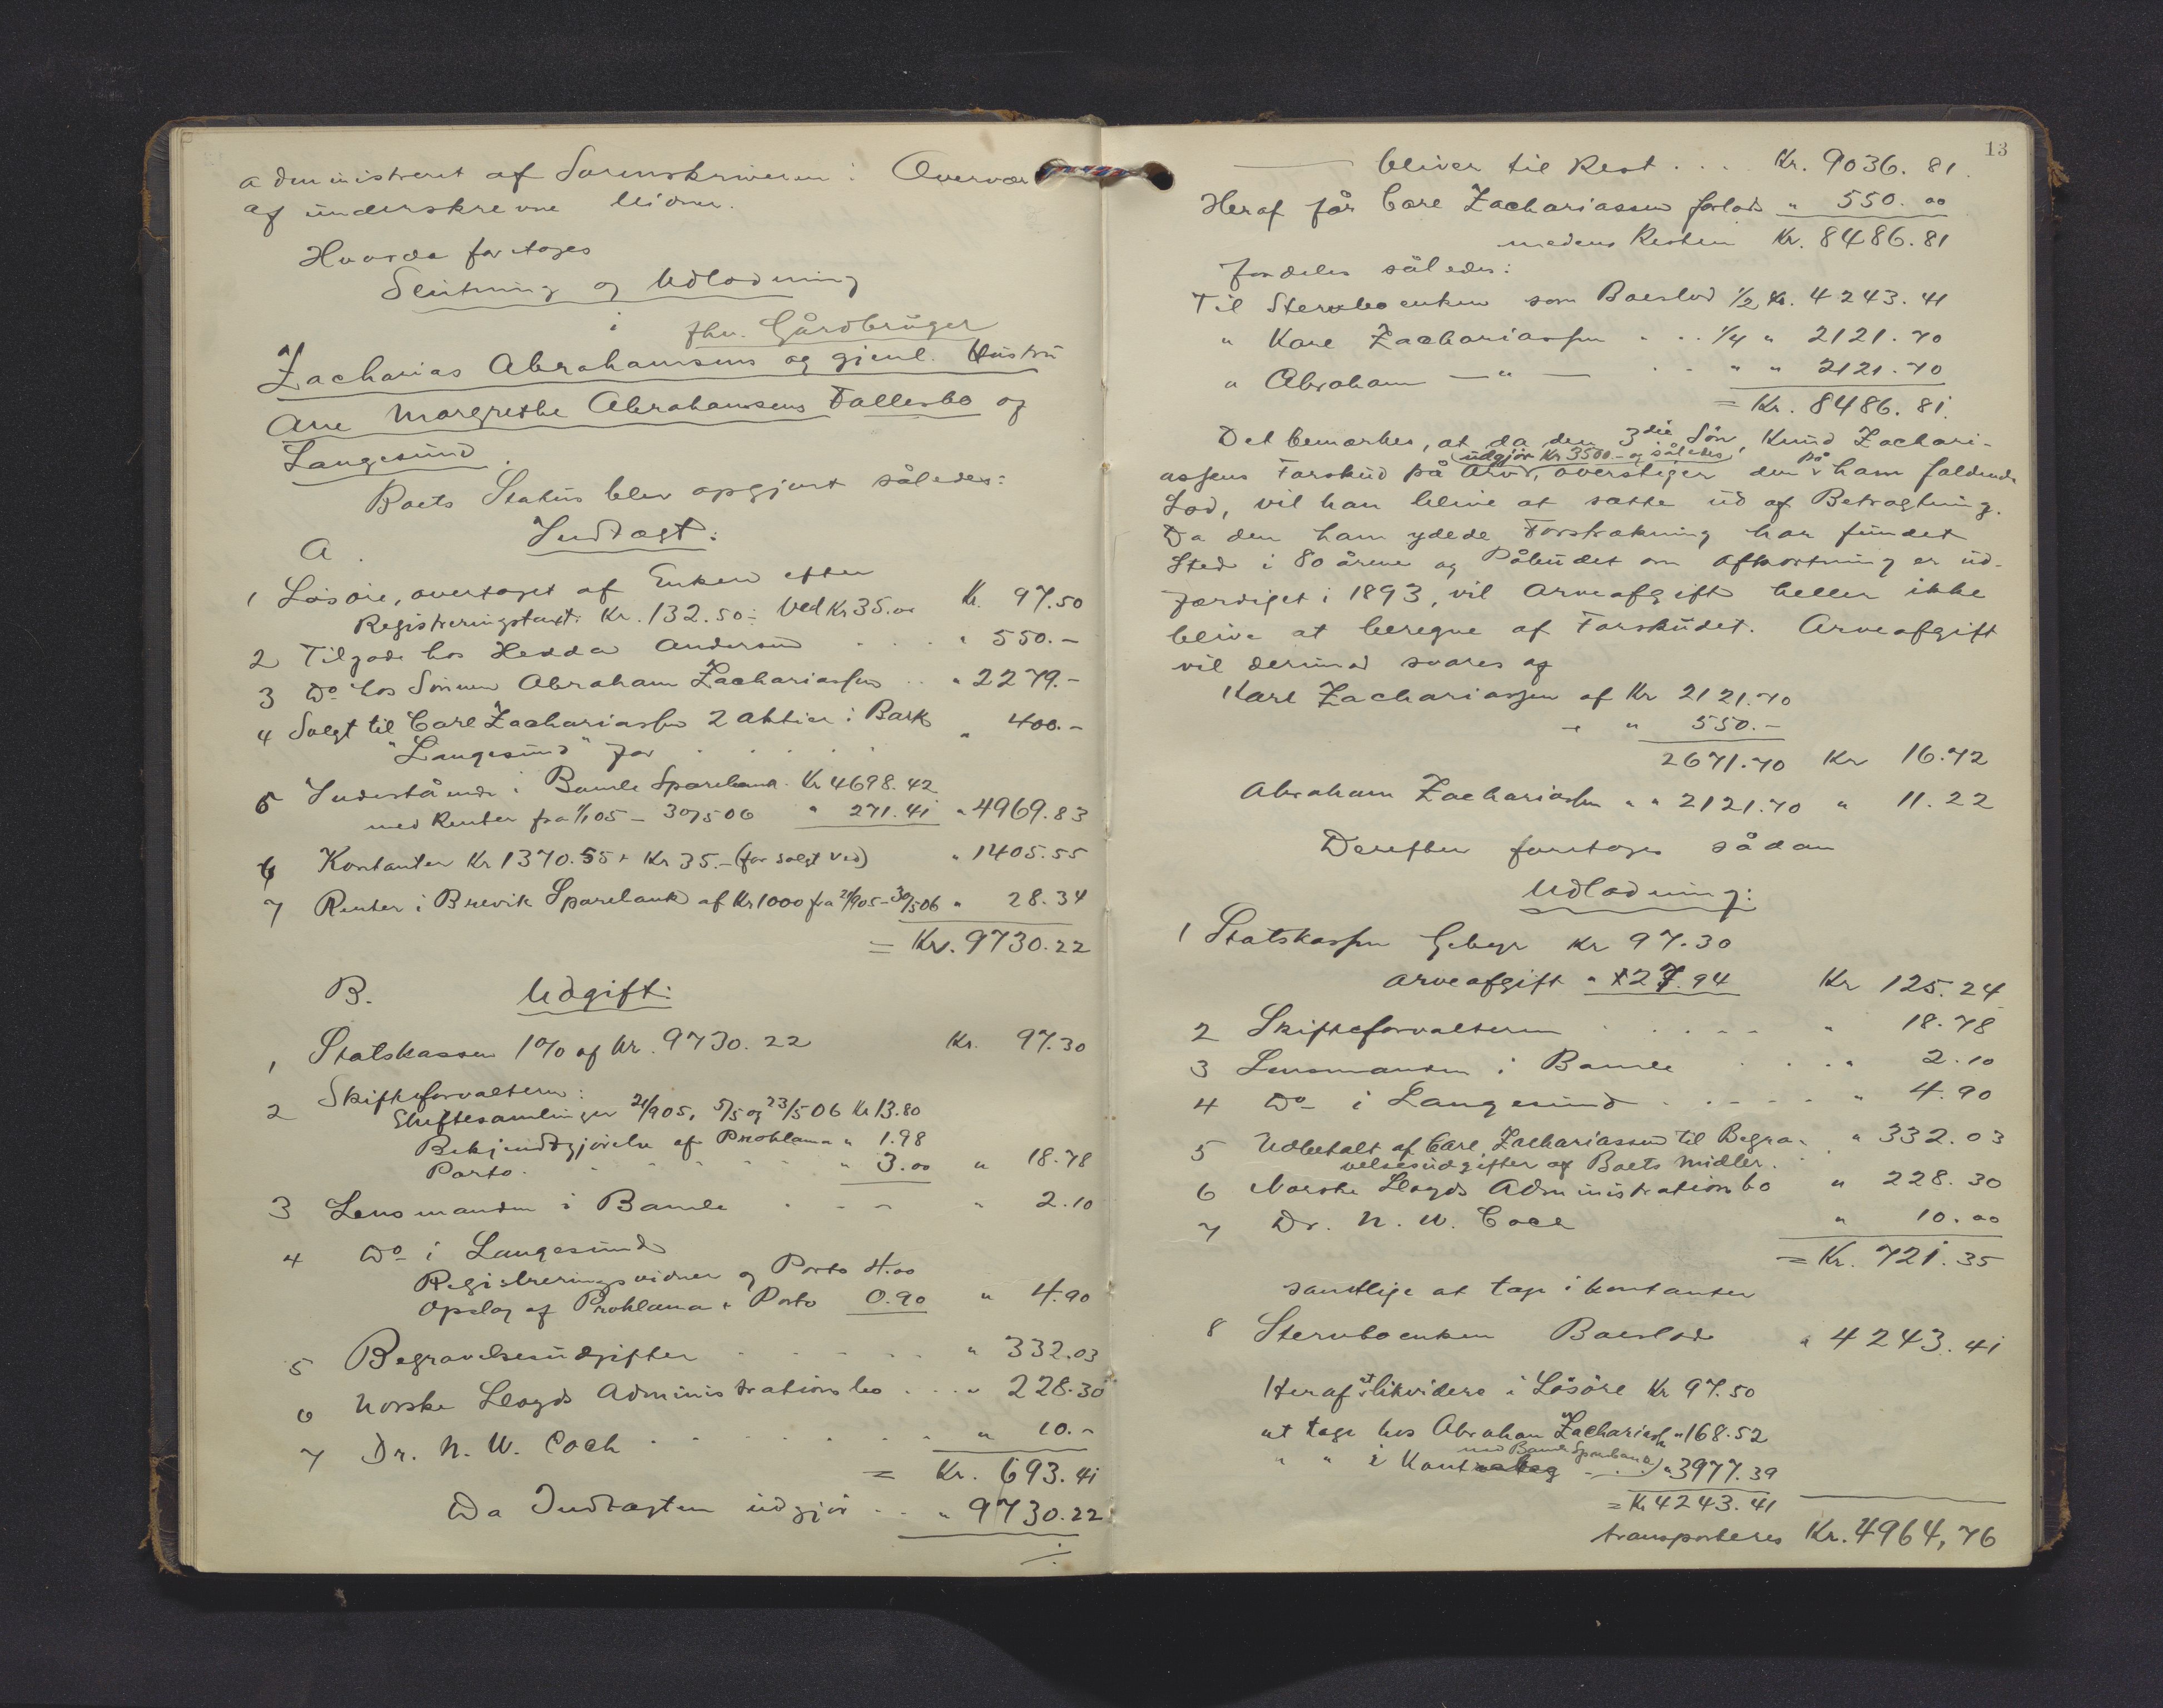 administreret af Sorenskriveren i Overvær
af underskrevne Vidner.
Hvorda foretages
Slutning og Udlodning
i fhv. Gårdbruger
Zacharias Abrahamsens og gjenl. Hustru
Ane Margrethe Abrahamsens Fallesbo af
Langesund.
Boets Status blev opgjort således:
A. Indtægt:
1 Løsøre, overtaget af Enken efter
Registreringstaxt: Kr. 132.50 ÷ Ved Kr 35.00 Kr. 97.50
2 Tilgode hos Hedda Andersen . . . " 550.-
3 Do hos Sønnen Abraham Zachariassen . . " 2279.-
4 Solgt til Carl Zachariassen 2 Aktier i Bark
"Langesund" for . . . . . " 400.-
5 Indestående i Bamle Sparebank Kr 4698.42
med Renter fra 1/1 05 - 30/5 06 " 271.41 " 4969.83
6 Kontanter Kr 1370.55 + Kr 35.- (for solgt Ved) " 1405.55
7 Renter i Brevik Sparebank af Kr 1000 fra 21/9 05 - 30/5 06 " 28.34
= Kr. 9730.22
B. Udgift:
1 Statskassen 1% af Kr. 9730.22 Kr. 97.30
2 Skifteforvalteren:
Skiftesamlinger 21/9 05, 5/5 og 23/5 06 Kr 13.80
Bekjendtgjørelse af Proklama " 1.98
Porto . . . . . . " 3.00 " 18.78
3 Lensmanden i Bamle . . . " 2.10
4 Do i Langesund
Registreringsvidner og Porto 4.00
Opslag af Proklama + Porto 0.90 " 4.90
5 Begravelsesudgifter . . . . . " 332.03
6 Norske Lloyds Administrationsbo . . . " 228.30
7 Dr. N. W. Coch . . . . . . " 10.-
= Kr. 693.41
Da Indtægten udgjør . . " 9730.22
./.
13
bliver til Rest . . . Kr. 9036.81
Heraf får Carl Zachariassen forlods " 550.00
medens Resten Kr. 8486.81
fordeles således:
Til Stervboenken som Boeslod 1/2 Kr. 4243.41
" Karl Zachariassen . . . 1/4 " 2121.70
" Abraham — " — . . " " 2121.70
= Kr. 8486.81
Det bemærkes, at da den 3die Søn, Knud Zachari-
udgjør Kr 3500.- og således
assens Forskud på Arv, overstiger den på ham faldende
Lod, vil han blive at sætte ud af Betragtning.
Da den ham ydede Forstrækning har fundet
Sted i 80 årene og Påbudet om Afkortning er ud-
færdiget i 1893, vil Arveafgift heller ikke
blive at beregne af Forskudet. Arveafgift
vil derimod svares af
Karl Zachariassen af Kr 2121.70
+ " 550.-
2671.70 Kr 16.72
Abraham Zachariassen " " 2121.70 " 11.22
Derefter foretoges sådan
Udlodning:
1 Statskassen Gebyr Kr 97.30
Arveafgift " 27.94 Kr 125.24
2 Skifteforvalteren . . . . . " 18.78
3 Lensmanden i Bamle . . . " 2.10
4 Do i Langesund . . . . . " 4.90
5 Udbetalt af Carl Zachariassen til Begra- " 332.03
velsesudgifter af Boets Midler.
6 Norske Lloyds Administrationsbo " 228.30
7 Dr. N. W. Coch " 10.00
= Kr. 721.35
samtlige at tage i kontanter
8 Stervboenken Boeslod " 4243.41
Heraf at likvidere i Løsøre Kr 97.50
at tage hos Abraham Zachariassen " 168.52
med Bamle Sparebank)
" " i Kont - . . " 3977.39
= Kr 4243.41
transporteres Kr. 4964,76